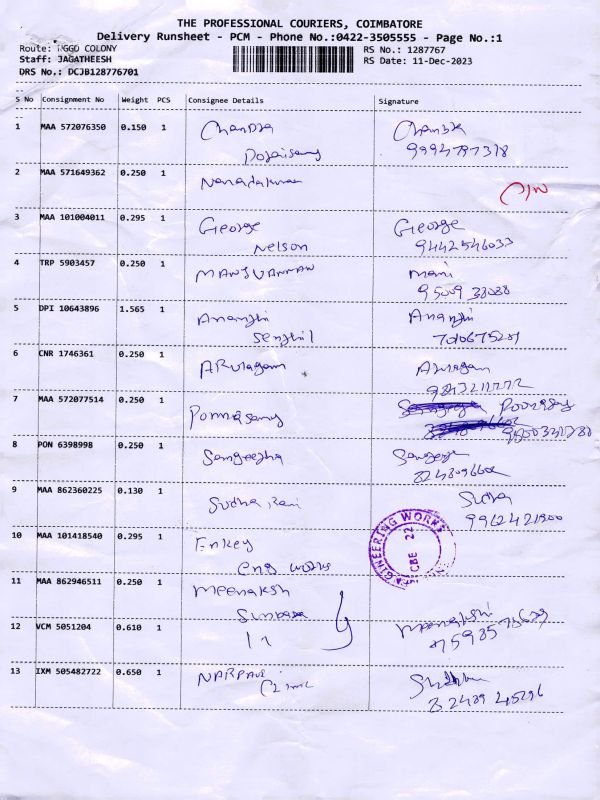 THE PROFESSIONAL COURIERS, COIMBATORE
Delivery Runsheet - PCM - Phone No.:0422-3505555 - Page No.:1
Route: NGGO COLONY
RS No.: 1287767
Staff: JAGATHEESH
RS Date: 11-Dec-2023
DRS No.: DCJB128776701
S No Consignment No Weight PCS Consignee Details Signature
1 MAA 572076350 0.150 1 Chandra Chandra
9994797318
2 MAA 571649362 0.250 1
3 MAA 101004011 0.295 1 George George
Nelson 9442546033
4 TRP 5903457 0.250 1 mani
95009 38088
5 DPI 10643896 1.565 1
6 CNR 1746361 0.250 1 ARulagam
7 MAA 572077514 0.250 1 Ponnusamy
8 PON 6398998 0.250 1 Sangeetha
9 MAA 862360225 0.130 1 Sudha Rani Sudha
9962421900
10 MAA 101418540 0.295 1 Enkey
eng works
ENGINEERING WORKS
CBE 22
11 MAA 862946511 0.250 1 meenaksh
Sundara
12 VCM 5051204 0.610 1 Meenakshi
13 IXM 505482722 0.650 1
82489 45296